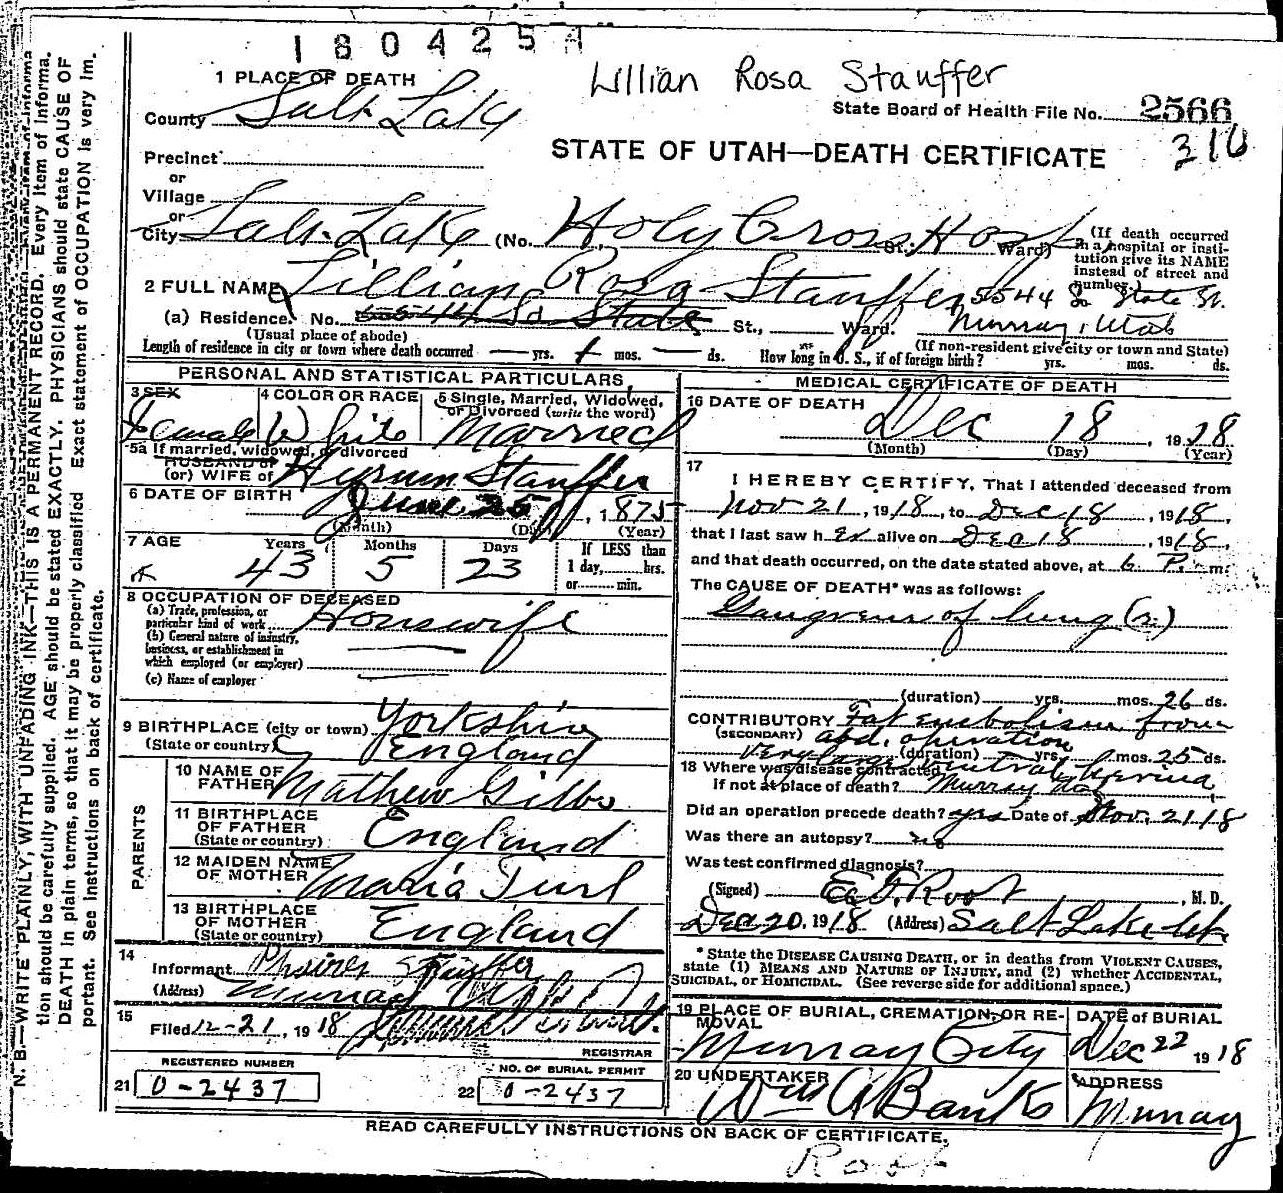 180425A
Lillian Rosa Stauffer
1 PLACE OF DEATH
County Salt Lake
State Board of Health File No. 2566
310
STATE OF UTAH—DEATH CERTIFICATE
Precinct
or
Village
or
City Salt Lake (No. Holy Cross Hosp St.; Ward)
(If death occurred in a hospital or institution give its NAME instead of street and number.)
2 FULL NAME Lillian Rosa Stauffer
5544 So State St.
(a) Residence. No. 5544 So State St., Ward. Murray, Utah
(Usual place of abode) (If non-resident give city or town and State)
Length of residence in city or town where death occurred — yrs. 1 mos. — ds. How long in U. S., if of foreign birth? yrs. mos. ds.
PERSONAL AND STATISTICAL PARTICULARS
3 SEX Female
4 COLOR OR RACE White
5 Single, Married, Widowed, or Divorced (write the word) Married
5a If married, widowed, or divorced
HUSBAND of
(or) WIFE of Hyrum Stauffer
6 DATE OF BIRTH June 25, 1875
(Month) (Day) (Year)
7 AGE Years 43 Months 5 Days 23 If LESS than 1 day, hrs. or min.
8 OCCUPATION OF DECEASED
(a) Trade, profession, or particular kind of work Housewife
(b) General nature of industry, business, or establishment in which employed (or employer)
(c) Name of employer
9 BIRTHPLACE (city or town) Yorkshire
(State or country) England
PARENTS
10 NAME OF FATHER Mathew Gibbs
11 BIRTHPLACE OF FATHER (State or country) England
12 MAIDEN NAME OF MOTHER Maria
13 BIRTHPLACE OF MOTHER (State or country) England
14
Informant Stauffer
(Address) Murray Utah
15
Filed 12-21, 1918
REGISTRAR
REGISTERED NUMBER
21 0-2437
NO. OF BURIAL PERMIT
22 0-2437
MEDICAL CERTIFICATE OF DEATH
16 DATE OF DEATH Dec 18, 1918
(Month) (Day) (Year)
17
I HEREBY CERTIFY, That I attended deceased from
Nov 21, 1918, to Dec 18, 1918,
that I last saw her alive on Dec 18, 1918,
and that death occurred, on the date stated above, at 6 P. m.
The CAUSE OF DEATH* was as follows:
Gangrene of lung (r.)
(duration) yrs. mos. 26 ds.
CONTRIBUTORY Fat embolism from
(SECONDARY) abd. operation
very large ventral hernia (duration) yrs. mos. 25 ds.
18 Where was disease contracted
If not at place of death? Murray Utah
Did an operation precede death? yes Date of Nov. 21 18
Was there an autopsy? no
Was test confirmed diagnosis?
(Signed) E. F. Root, M. D.
Dec 20, 1918 (Address) Salt Lake Ut.
*State the DISEASE CAUSING DEATH, or in deaths from VIOLENT CAUSES, state (1) MEANS AND NATURE OF INJURY, and (2) whether ACCIDENTAL, SUICIDAL, or HOMICIDAL. (See reverse side for additional space.)
19 PLACE OF BURIAL, CREMATION, OR REMOVAL Murray City
DATE of BURIAL Dec 22 1918
20 UNDERTAKER Wm A Banks
ADDRESS Murray
READ CAREFULLY INSTRUCTIONS ON BACK OF CERTIFICATE.
Root
N. B.—WRITE PLAINLY, WITH UNFADING INK—THIS IS A PERMANENT RECORD. Every item of informa-
tion should be carefully supplied. AGE should be stated EXACTLY. PHYSICIANS should state CAUSE OF
DEATH in plain terms, so that it may be properly classified. Exact statement of OCCUPATION is very im-
portant. See instructions on back of certificate.